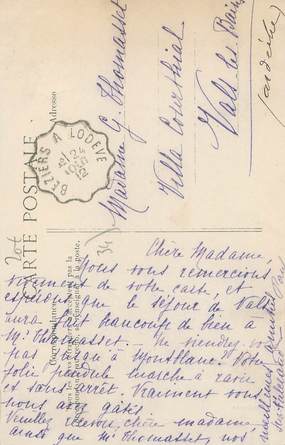 CARTE POSTALE
Adresse
BEZIERS A LODEVE
Madame G. Thomasset
Villa Courthial
Vals les Bains
Ardèche
Chère Madame,
Nous vous remercions
vivement de votre carte, et
espérons que le séjour de Vals
aura fait beaucoup de bien à
Mr Thomasset.
pas à Montblanc. Votre
jolie pendule marche à ravir
et sans arrêt. Vraiment vous
nous avez gâtés
Veuillez recevoir, chère madame
ainsi que Mr Thomasset nos
meilleures